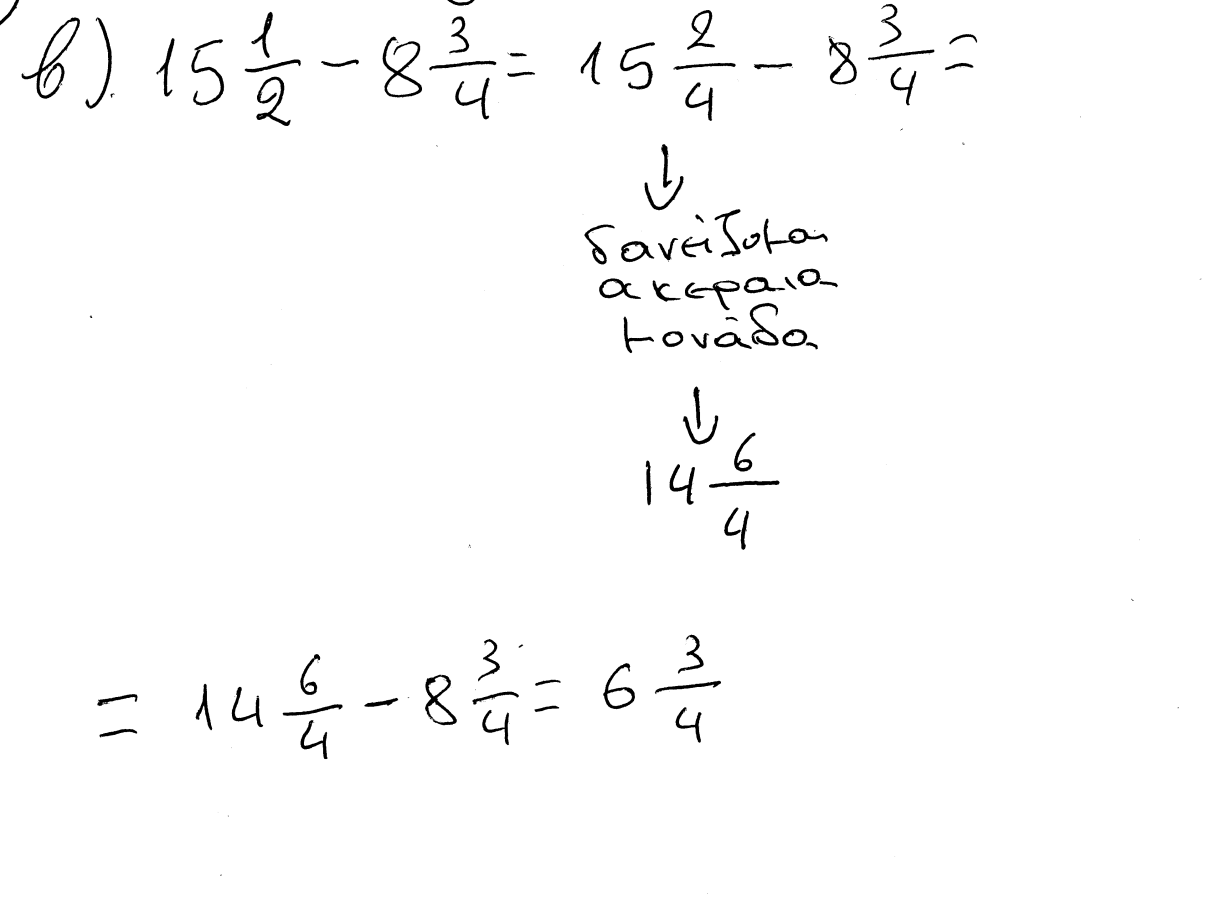 β). 15 1/2 - 8 3/4 = 15 2/4 - 8 3/4 =
↓
δανείζομαι
ακεραια
μονάδα
↓
14 6/4
= 14 6/4 - 8 3/4 = 6 3/4